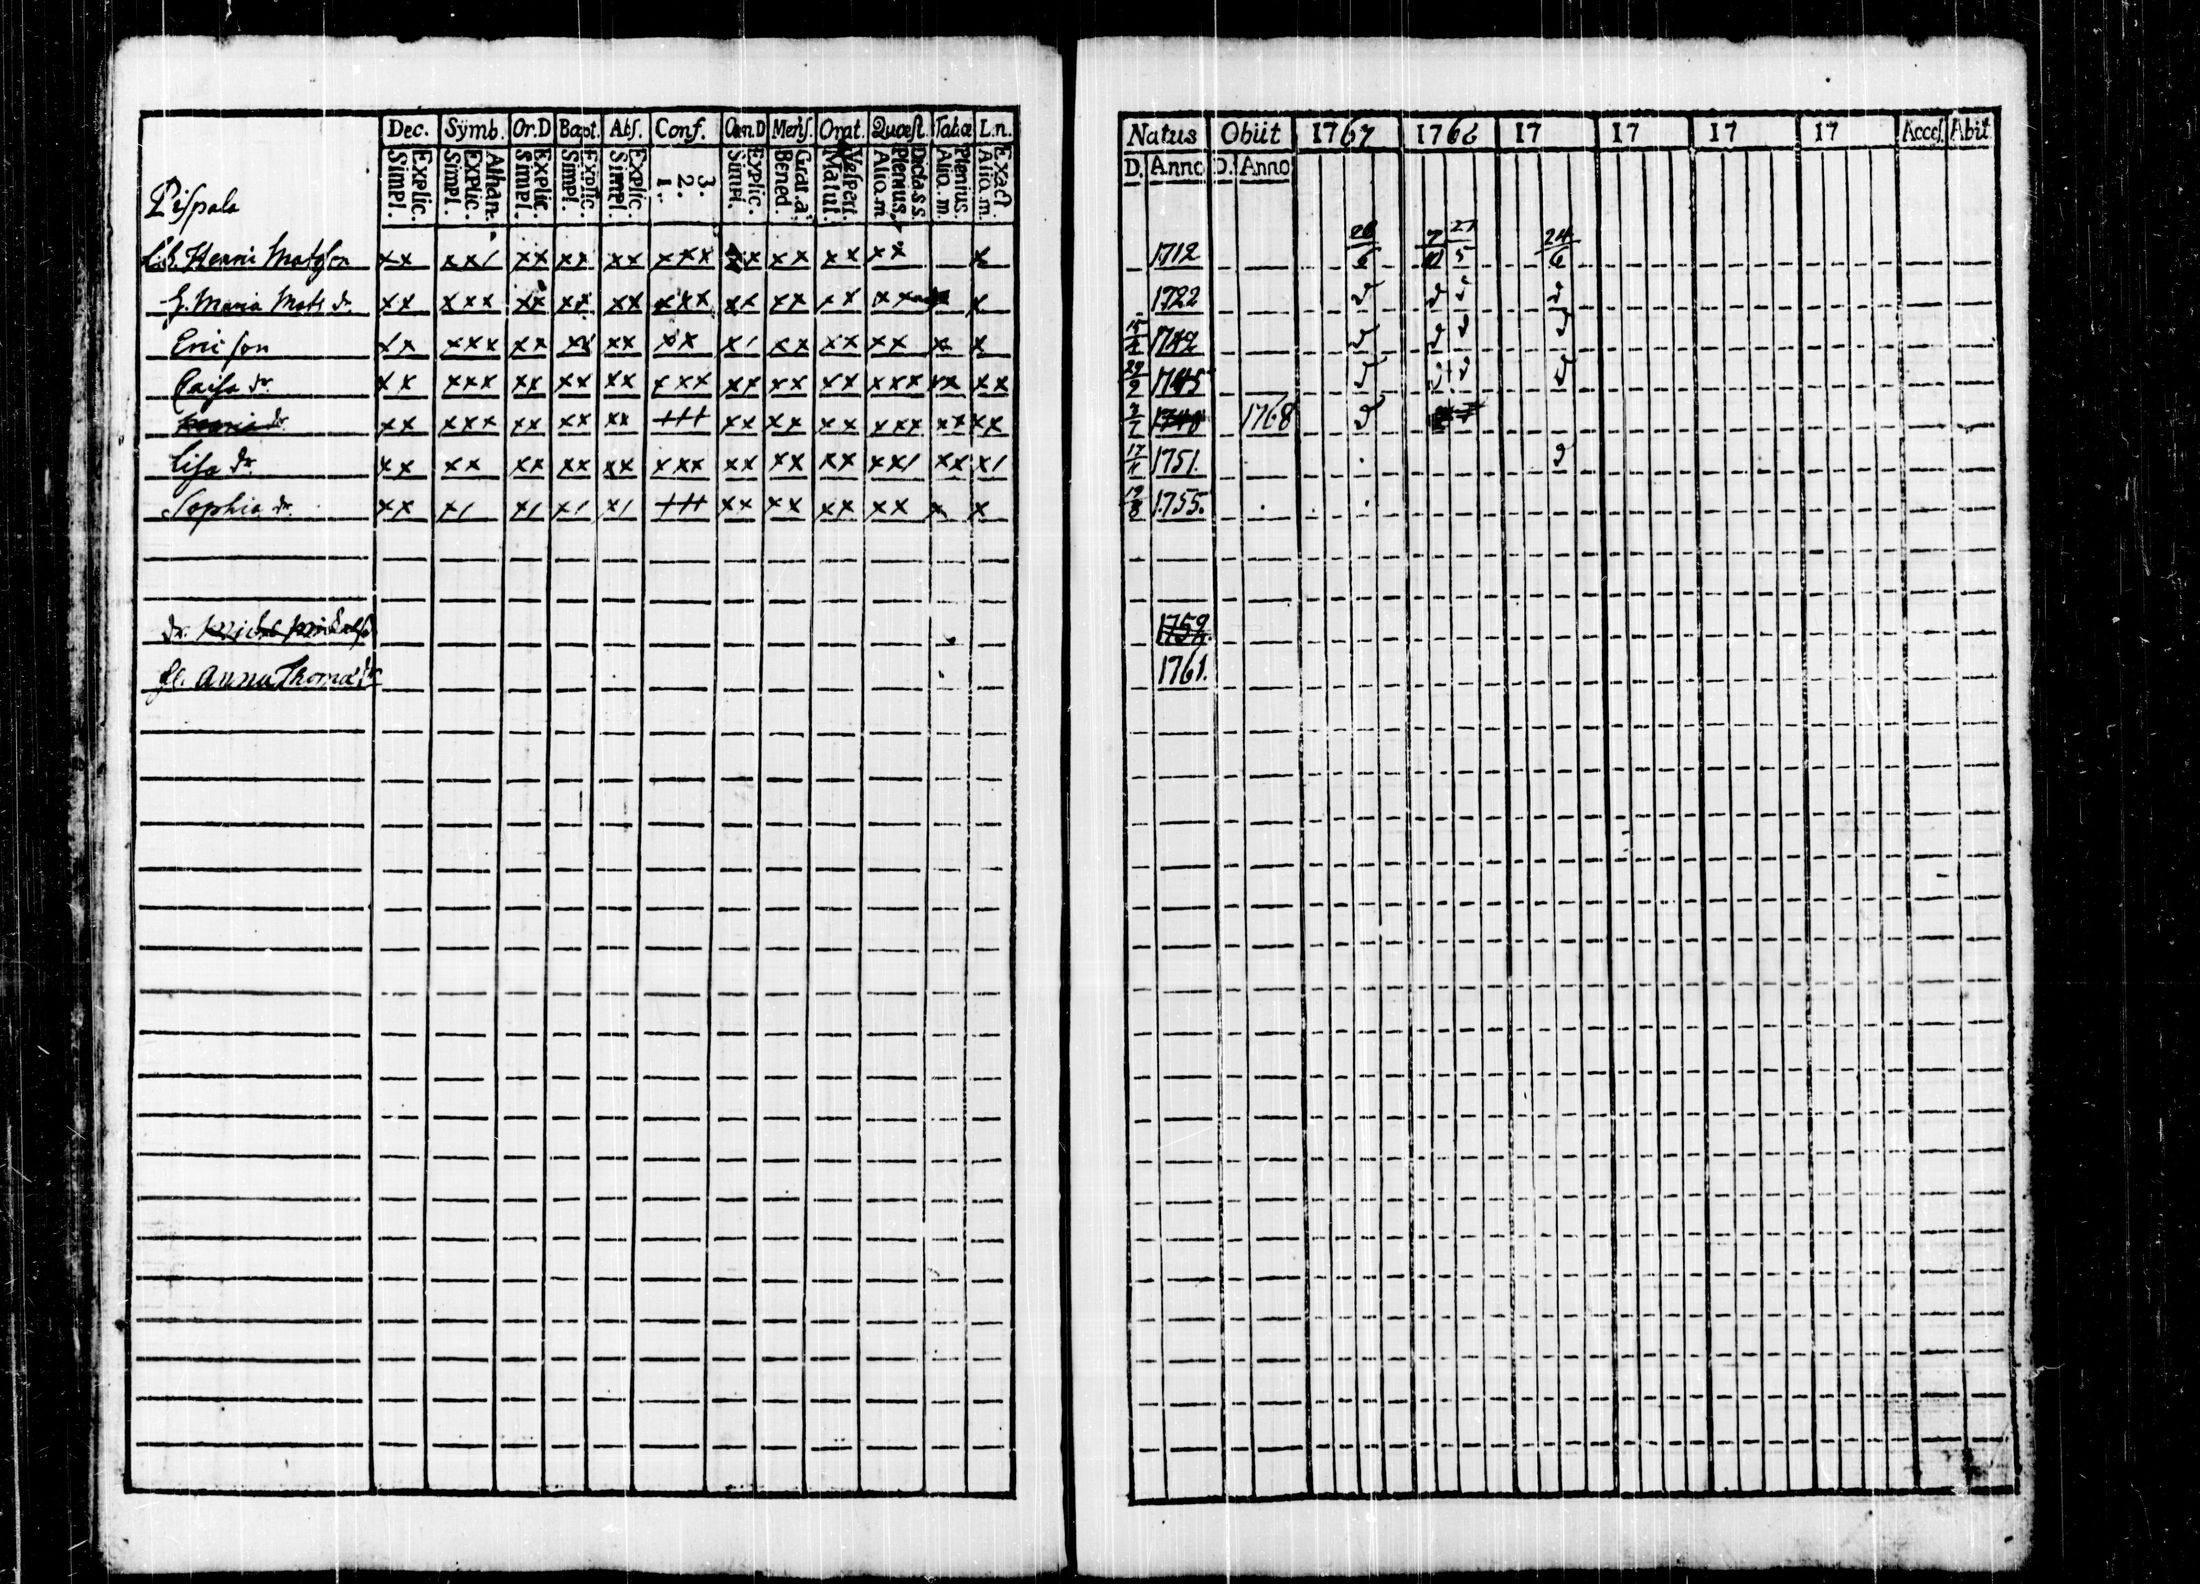 Dec. Symb. Or.D Bapt. Abſ. Conf. Cœn.D Menſ. Orat. Quæſt. Tabæ L.n.
Explic. Simpl. Athan. Explic. Simpl. Explic. Simpl. Explic. Simpl. Explic. Simpl. 3. 2. 1. Explic. Simpl. Grat. a. Bened. Veſpert. Matut. Dicta.s.s. Plenius. Alio.m Plenius. Alio.m. Exact. Alio.m.
Piſpala
Henric Matsſon xx xx/ xx xx xx xxx xx xx xx xx x
H. Maria Mats dr. xx xxx xx xx xx xxx xx xx xx x
Eric ſon xx xxx xx xx xx xx x/ xx xx xx x x
Caiſa dr. xx xxx xx xx xx xxx xx xx xx xxx xx xx
dr. xx xxx xx xx xx +++ xx xx xx xxx xx xx
Liſa dr. xx xx xx xx xx xxx xx xx xx xx/ xx x/
Sophia dr. xx x/ x/ x/ x/ +++ xx xx xx xx x x
dr. Michel
Anna Thomæ dr
Natus Obiit 1767 1768 17 17 17 17 Acceſ. Abiit
D. Anno D. Anno
1712 26/6 27/5 24/6
1722
1742
29/9 1745
1768
17/11 1751.
19/8 1755.
1759.
1761.